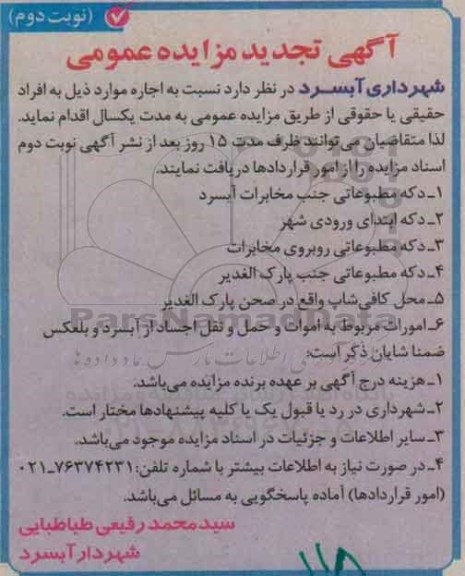 (نوبت دوم)
آگهی تجدید مزایده عمومی
شهرداری آبسرد در نظر دارد نسبت به اجاره موارد ذیل به افراد
حقیقی یا حقوقی از طریق مزایده عمومی به مدت یکسال اقدام نماید.
لذا متقاضیان می‌توانند ظرف مدت ۱۵ روز بعد از نشر آگهی نوبت دوم
اسناد مزایده را از امور قراردادها دریافت نمایند.
۱ـ دکه مطبوعاتی جنب مخابرات آبسرد
۲ـ دکه ابتدای ورودی شهر
۳ـ دکه مطبوعاتی روبروی مخابرات
۴ـ دکه مطبوعاتی جنب پارک الغدیر
۵ـ محل کافی‌شاپ واقع در صحن پارک الغدیر
۶ـ امورات مربوط به اموات و حمل و نقل اجساد از آبسرد و بلعکس
ضمنا شایان ذکر است:
۱ـ هزینه درج آگهی بر عهده برنده مزایده می‌باشد.
۲ـ شهرداری در رد یا قبول یک یا کلیه پیشنهادها مختار است.
۳ـ سایر اطلاعات و جزئیات در اسناد مزایده موجود می‌باشد.
۴ـ در صورت نیاز به اطلاعات بیشتر با شماره تلفن: ۷۶۳۷۴۲۳۱ـ۰۲۱
(امور قراردادها) آماده پاسخگویی به مسائل می‌باشد.
سید محمد رفیعی طباطبایی
شهردار آبسرد
ParsNamadData